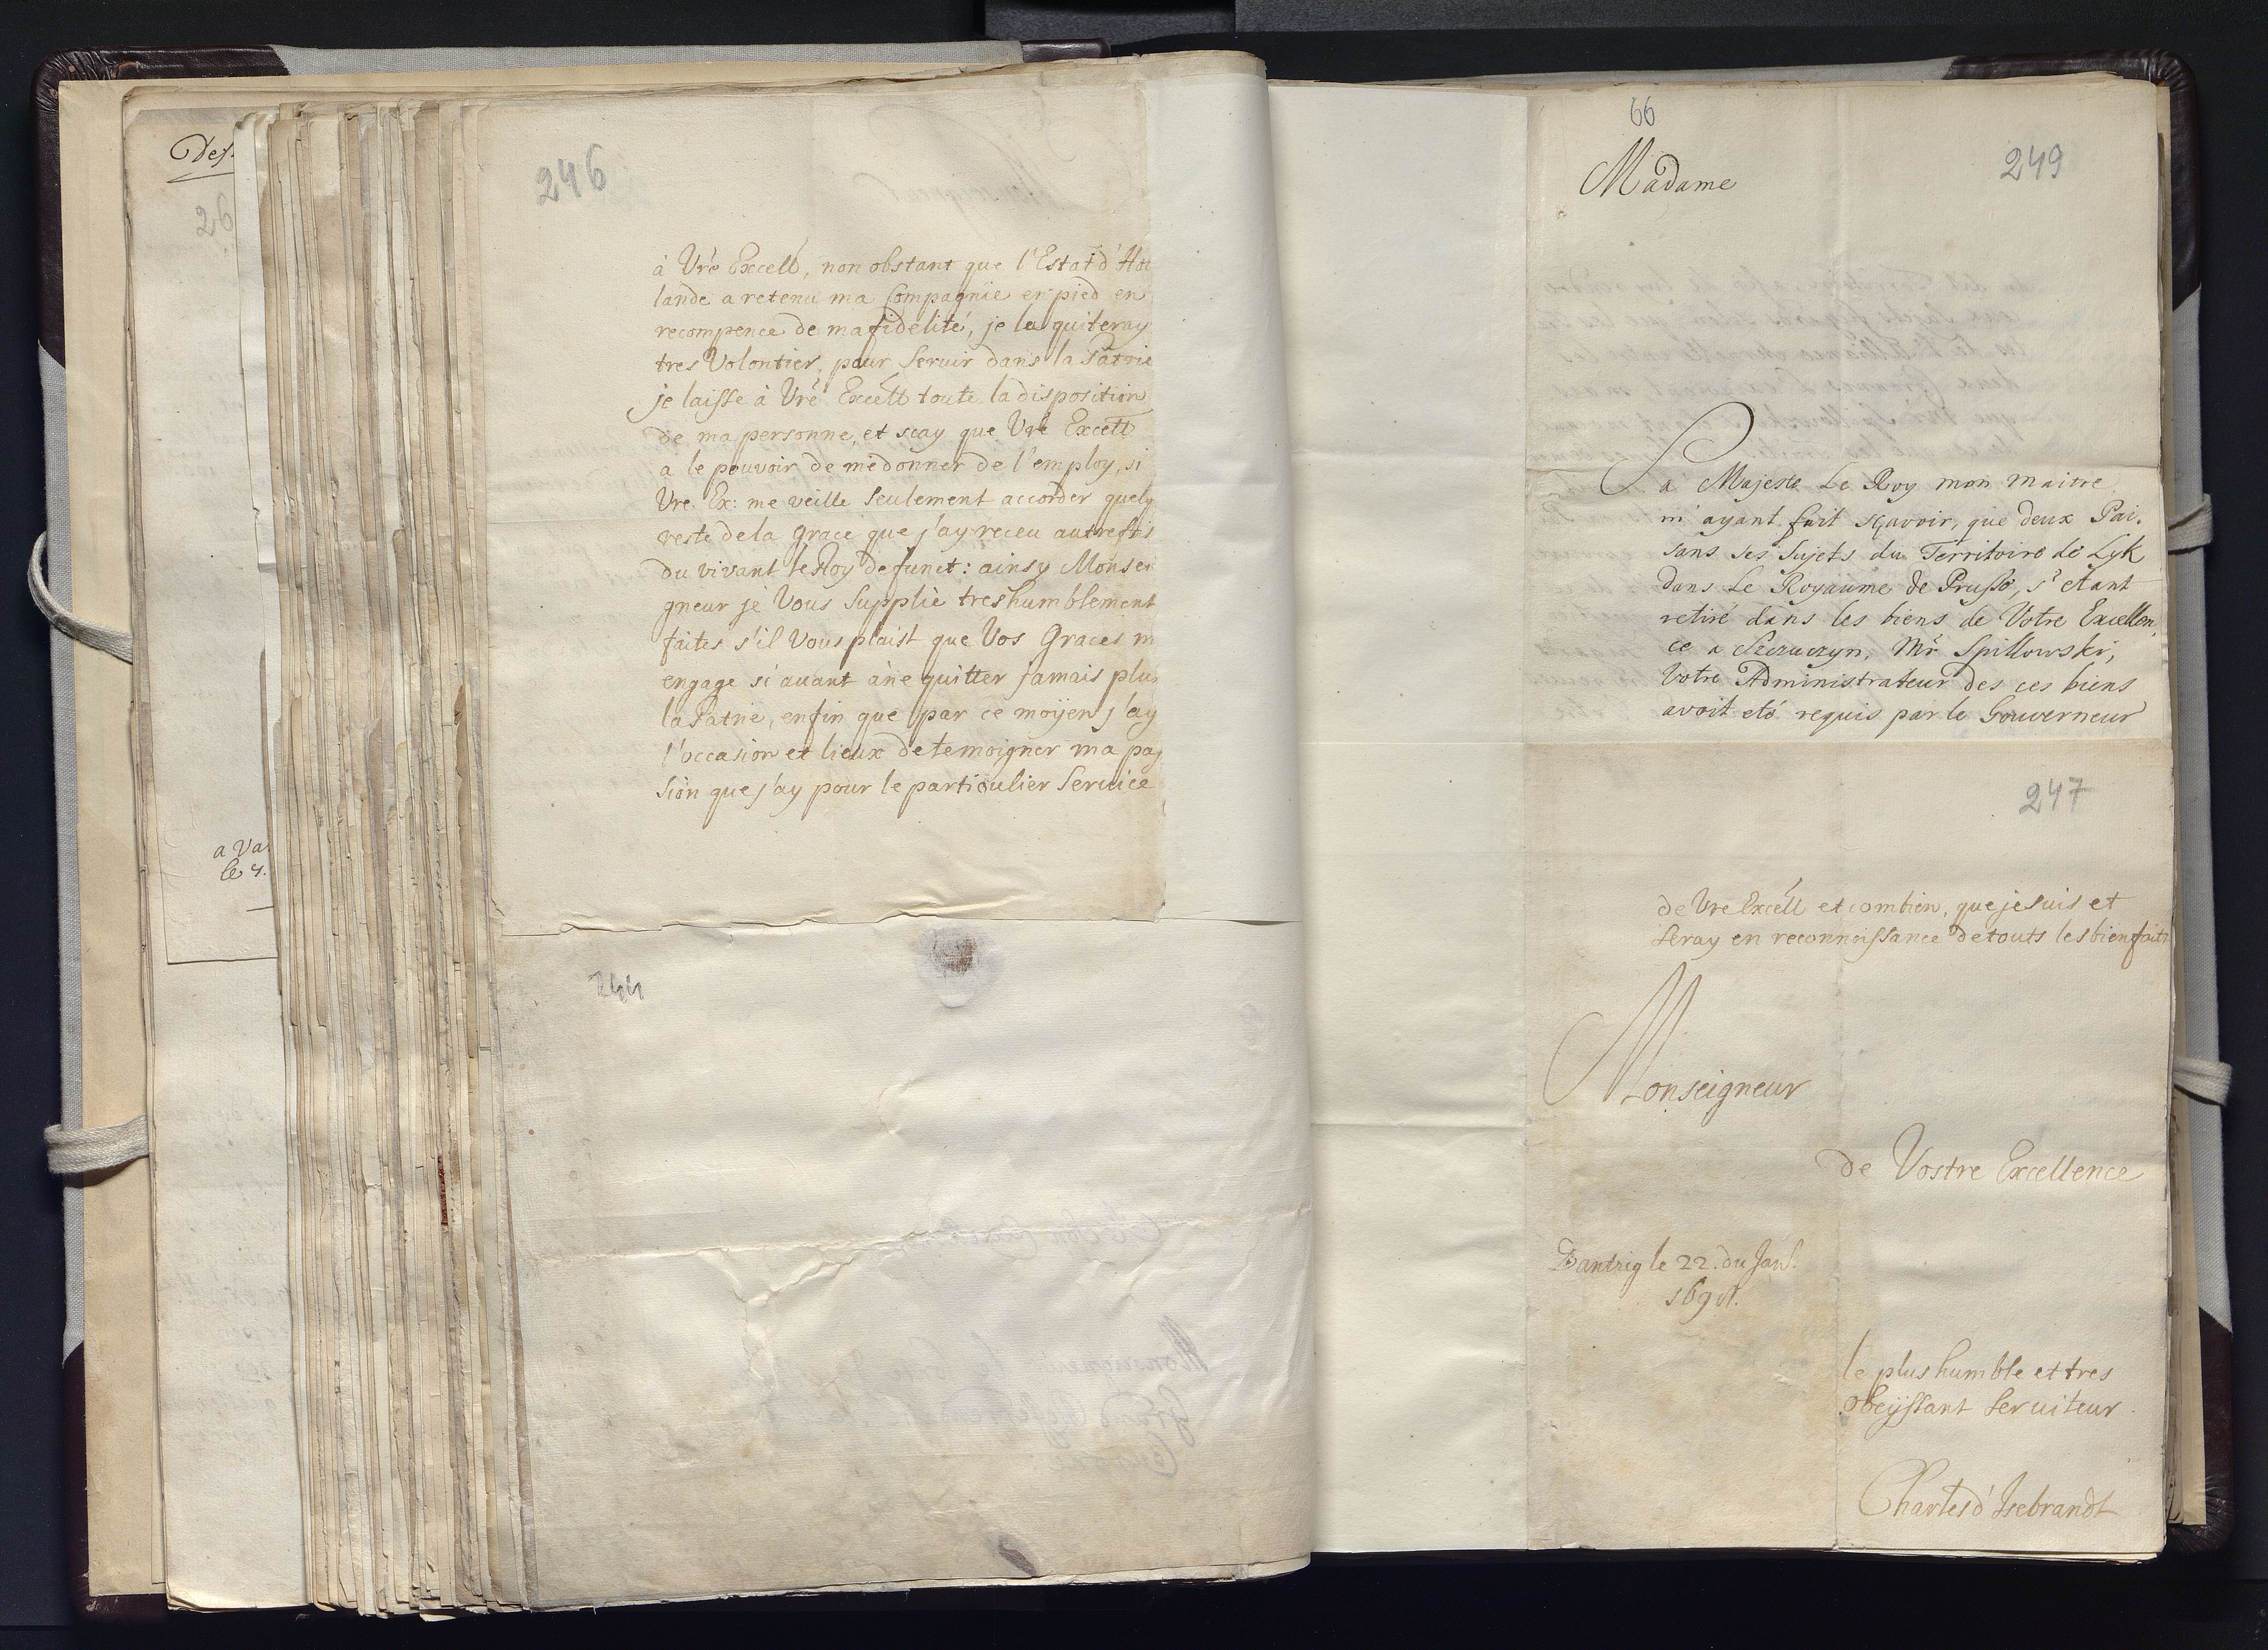 Des
26
a Va
le 4.
246
à Vré Excell, non obstant que l'Estat d'Hol
lande a retenu ma Compagnie en pied en
recompence de ma fidelité, je la quiteray
tres Volontier, pour Servir dans la Patrie
je laisse à Vré Excell toute la disposition
de ma personne, et scay que Vré Excell
a le pouvoir de me donner de l'employ, si
Vre Ex: me veille Seulement accorder quelq
reste de la grace que j'ay receu autrefois
du vivant le Roy defunct: ainsy Monsei
gneur je Vous Supplie tres humblement
faites s'il Vous plaist que Vos Graces m
engage si avant à ne quitter jamais plus
la Patrie, enfin que par ce moijen j'ay
l'occasion et lieux de temoigner ma pas
sion que j'ay pour le particulier Service
244
66
249
Madame
Sa Majeste Le Roy mon maitre
m'ayant fait sçavoir, que deux Pai.
sans ses Sujets du Territoire de Lyk
dans Le Royaume de Prusse, s'etant
retiré dans les biens de Votre Excellen
ce a Szczuczyn, Mr Spillowski,
Votre Administrateur des ces biens
avoit eté requis par le Gouverneur
247
de Vre Excell et combien, que je suis et
Seray en reconnoissance de touts les bienfaits
Monseigneur
de Vostre Excellence
Dantzig le 22. du Janv.
le plus humble et tres
obeijssant Serviteur
Charles d'Isebrandt